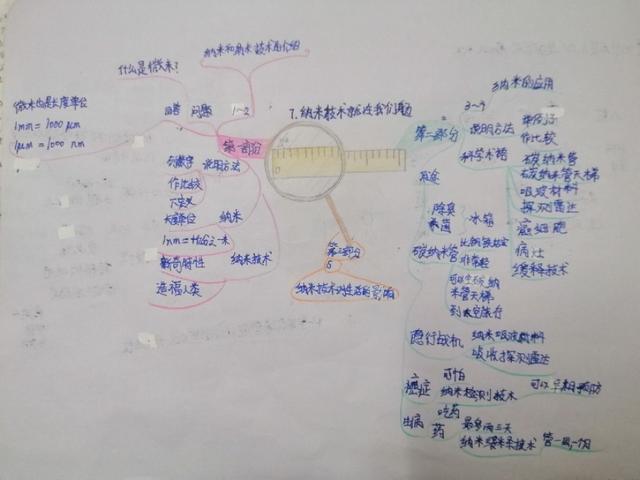 纳米和纳米技术的介绍
什么是微米?
微米也是长度单位
1mm=1000μm
1μm=1000nm
回答 问题 1~2
第一部分
列数字 说明方法
作比较
下定义
长度单位 纳米
新奇特性 纳米技术
造福人类
7.纳米技术就在我们身边
第三部分
5
纳米技术对生活的影响
纳米的应用
3~4
第二部分 说明方法
作比较
科学术语 碳纳米管
碳纳米管天梯
吸波材料
探测雷达
癌细胞
病灶
缓释技术
用途
除臭
杀菌 冰箱
碳纳米管
非常轻
米管天梯
到太空旅行
隐行战机
纳米吸波材料
吸收探测雷达
癌症 可怕
纳米检测技术 可以早期预防
生病 吃药
药 最多两三天
纳米缓释技术 管一周,一个月